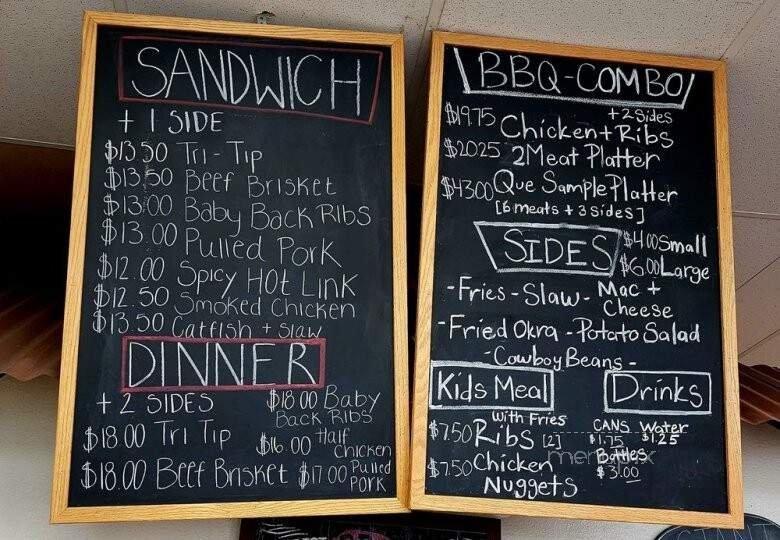 SANDWICH
+ 1 SIDE
$13.50 Tri-Tip
$13.50 Beef Brisket
$13.00 Baby Back Ribs
$13.00 Pulled Pork
$12.00 Spicy Hot Link
$12.50 Smoked Chicken
$13.50 Catfish + slaw
DINNER
+ 2 SIDES
$18.00 Tri Tip
$18.00 Beef Brisket
$18.00 Baby
Back Ribs
$16.00 Half
Chicken
$17.00 Pulled
Pork
BBQ-COMBO
+2 Sides
$19.75 Chicken+Ribs
$20.25 2 Meat Platter
$43.00 Que Sample Platter
[6 meats + 3 sides]
SIDES
$4.00 Small
$6.00 Large
-Fries-Slaw- Mac +
Cheese
-Fried Okra -Potato Salad
-Cowboy Beans-
Kids Meal
with Fries
$7.50 Ribs [2]
$7.50 Chicken
Nuggets
Drinks
CANS Water
$1.75 $1.25
Bottles
$3.00